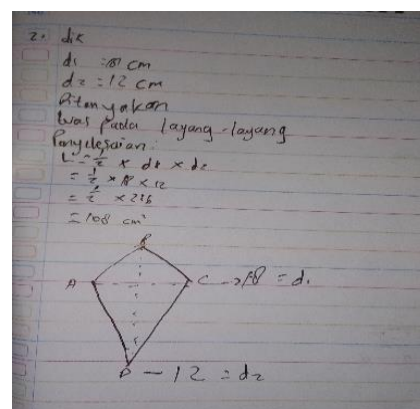 2. dik
d1 = 18 cm
d2 = 12 cm
Ditanyakan
Luas pada layang-layang
Penyelesaian:
L = 1/2 x d1 x d2
= 1/2 x 18 x 12
= 1/2 x 216
= 108 cm²
B
A
C → 18 = d1
D — 12 = d2